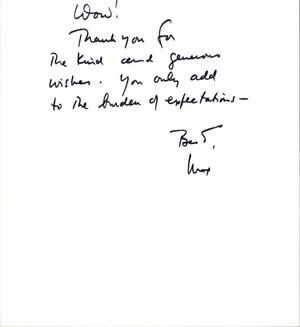 Wow!
Thank you for
the kind and generous
wishes. You only add
to the burden of expectations—
Best,
Max